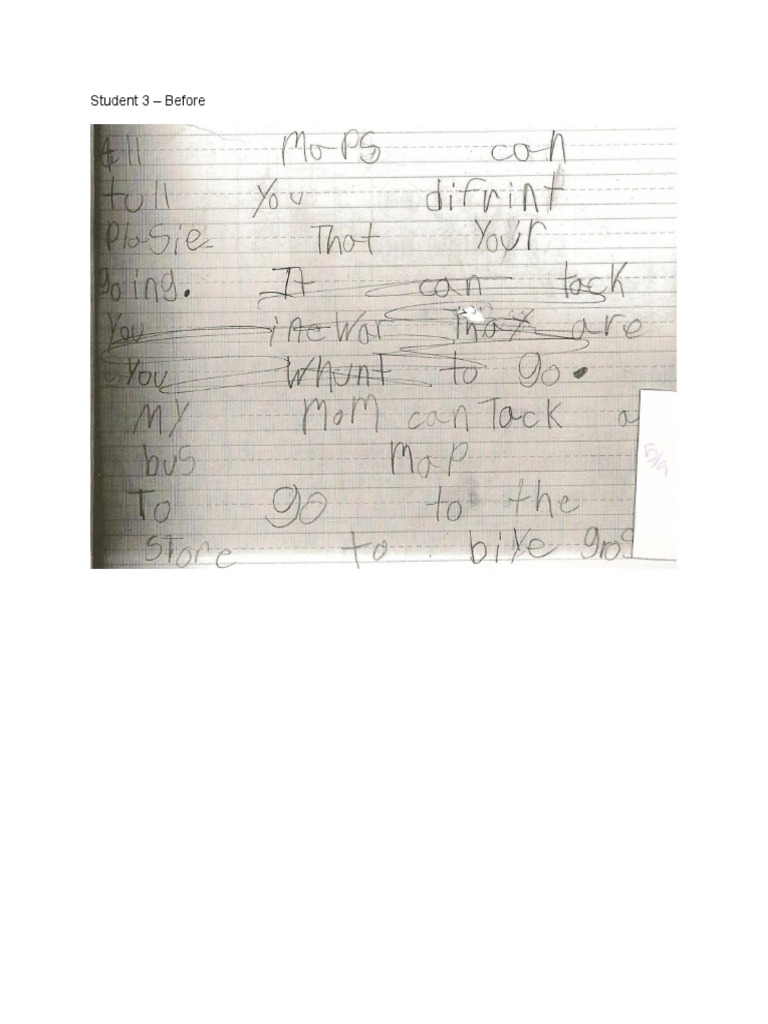 Student 3 – Before
All Maps can
tull you difrint
Plasie That Your
going. It can tack
You inewar Thay are
You Whunt to go.
My MoM can Tack a
bus Map
To go to the
STore to biye